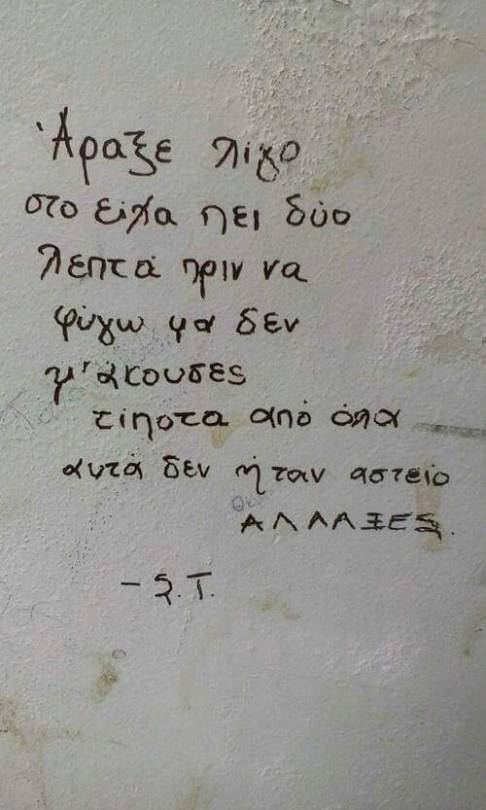 Άραξε λίγο
στο είχα πει δύο
λεπτά πριν να
φύγω μα δεν
μ' άκουσες
τίποτα από όλα
αυτά δεν ήταν αστείο
ΑΛΛΑΞΕΣ.
- S.T.